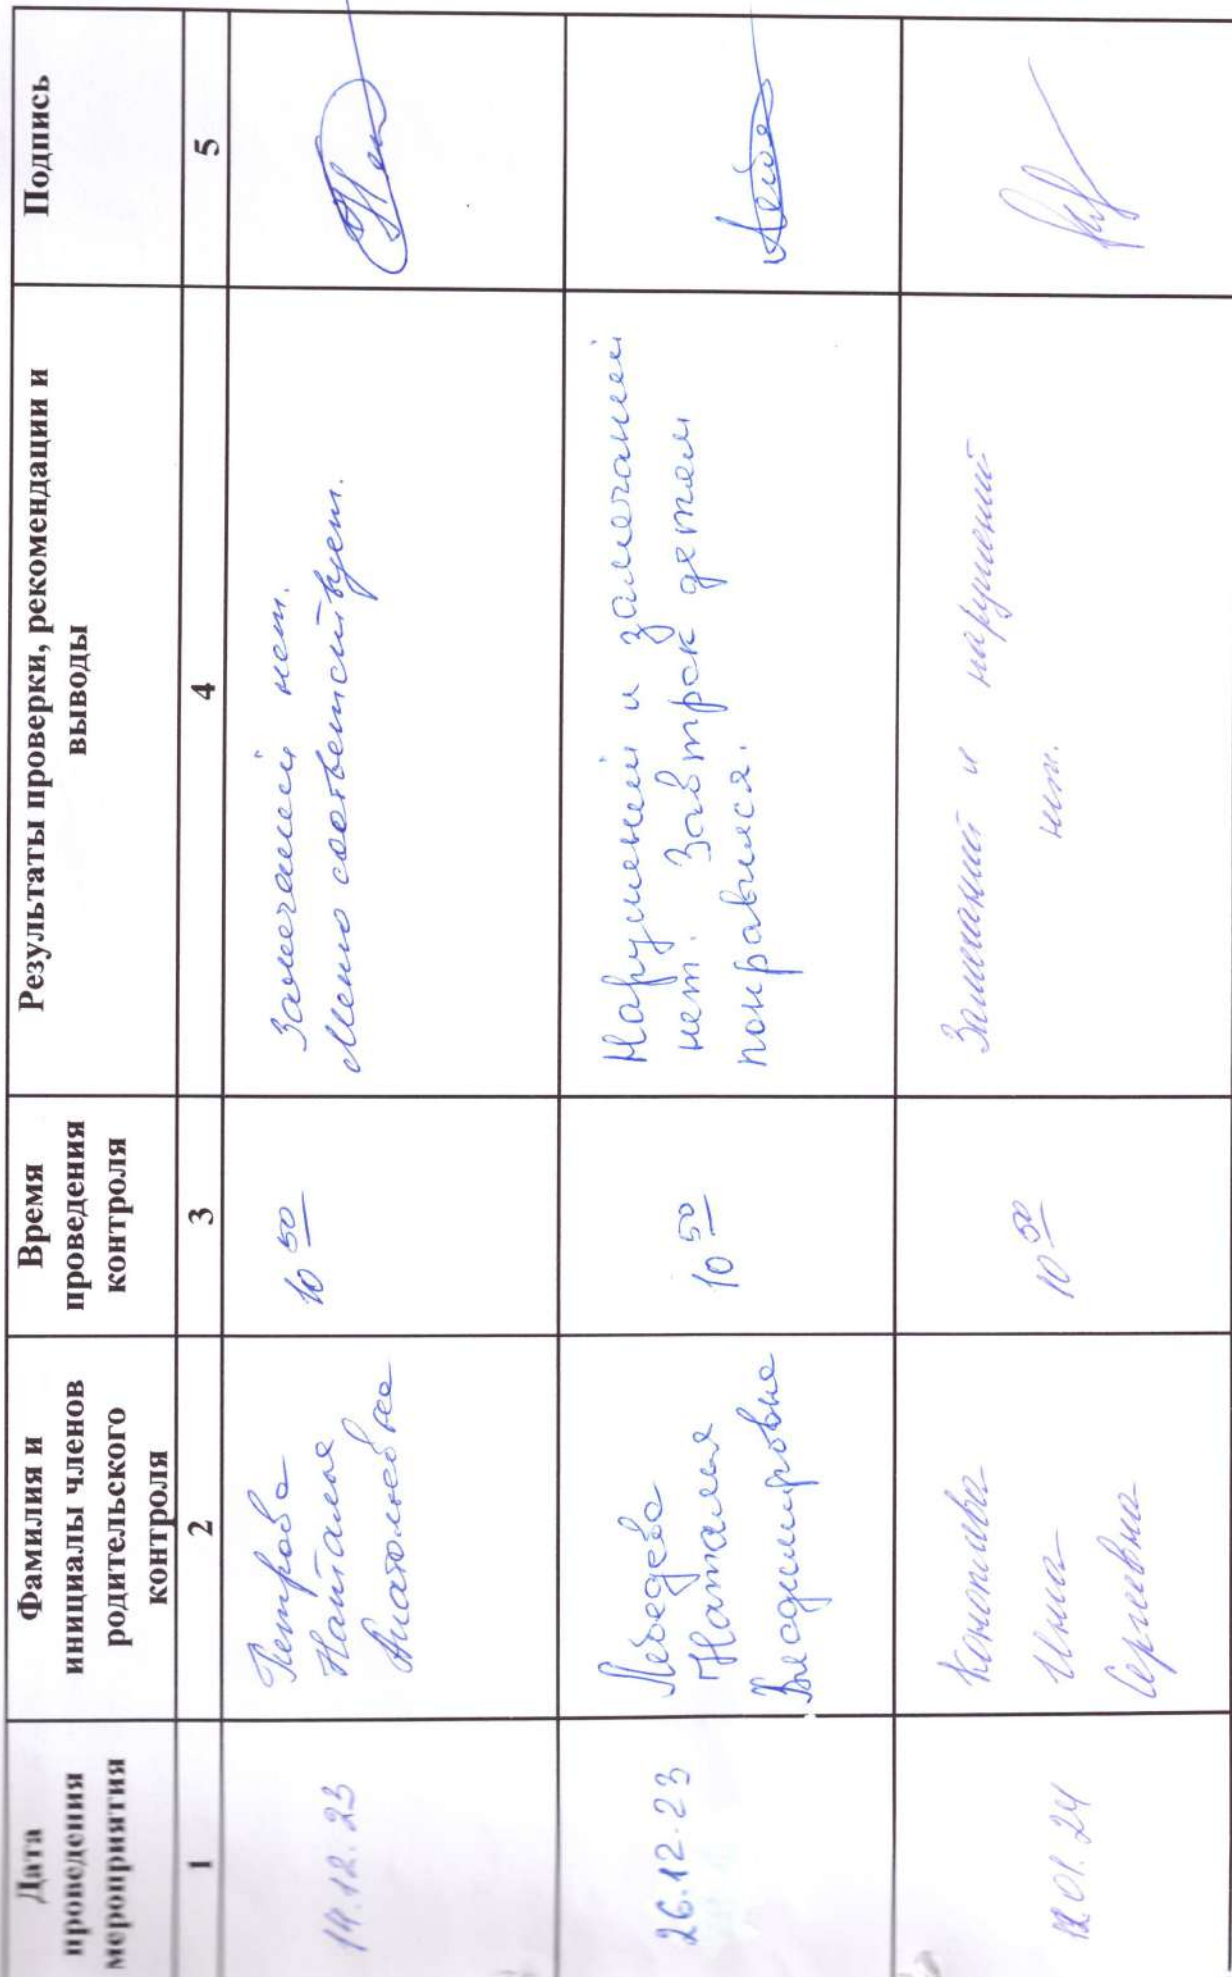 Дата
проведения
мероприятия
Фамилия и
инициалы членов
родительского
контроля
Время
проведения
контроля
Результаты проверки, рекомендации и
выводы
Подпись
1
2
3
4
5
14.12.23
Петрова
Наталья
Анатольевна
10 50
Замечаний нет.
Меню соответствует.
26.12.23
Лебедева
Наталья
Владимировна
10 50
Нарушений и замечаний
нет. Завтрак детям
понравился.
12.01.24
Инна
Сергеевна
10 50
Замечаний и нарушений
нет.